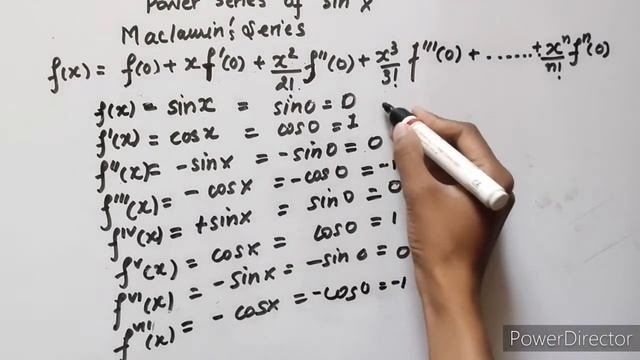 Power series of sin x
Maclaurin's Series
f(x) = f(0) + x f'(0) + x²/2! f''(0) + x³/3! f'''(0) + ...... + xⁿ/n! fⁿ(0)
f(x) = sinx = sin0 = 0
f'(x) = cosx = cos0 = 1
f''(x) = -sinx = -sin0 = 0
f'''(x) = -cosx = -cos0 = -1
f^IV(x) = +sinx = sin0 = 0
f^V(x) = cosx = cos0 = 1
f^VI(x) = -sinx = -sin0 = 0
f^VII(x) = -cosx = -cos0 = -1
PowerDirector